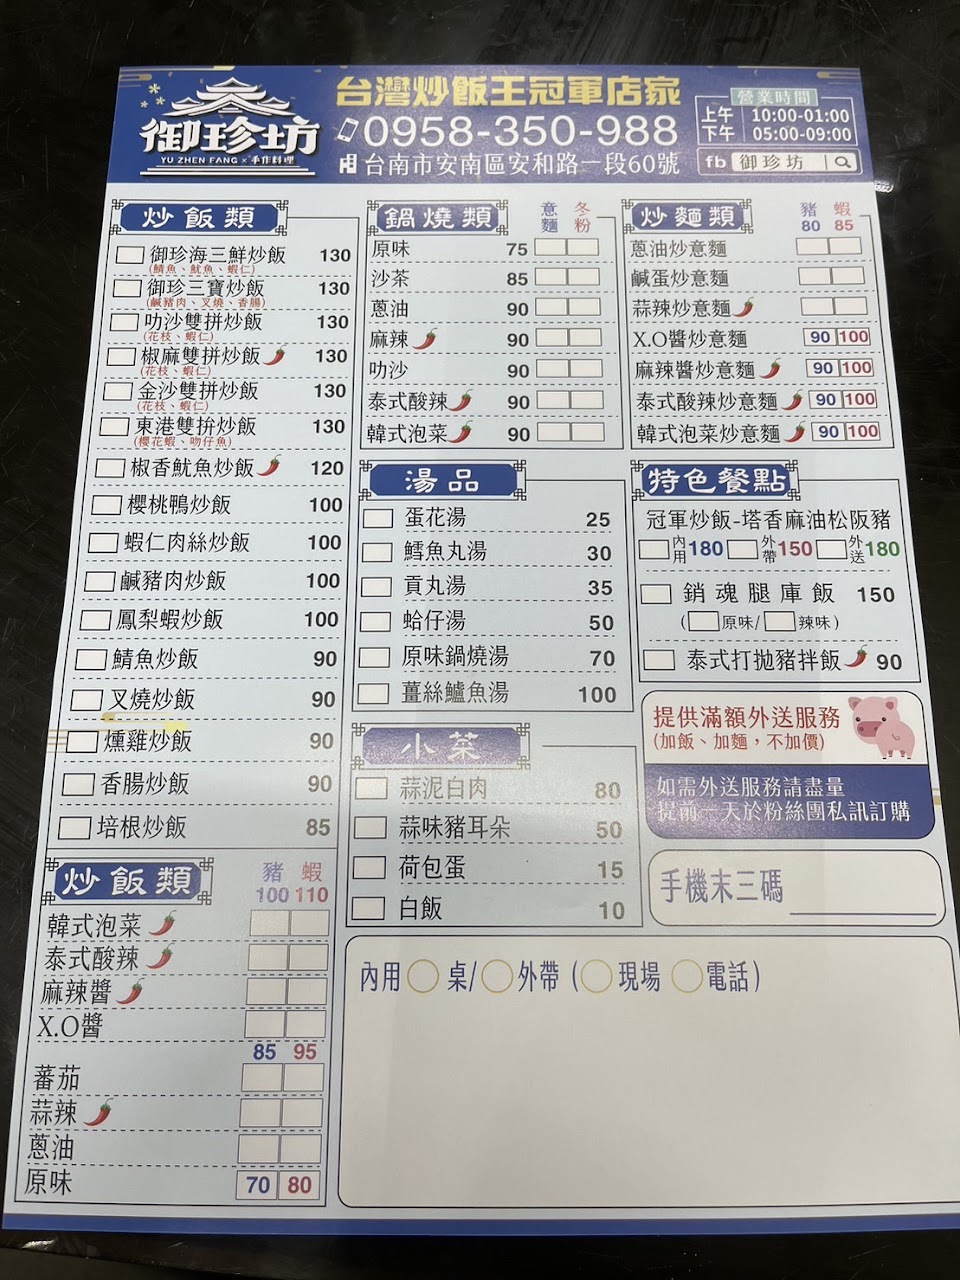 御珍坊
YU ZHEN FANG × 手作料理
台灣炒飯王冠軍店家
0958-350-988
台南市安南區安和路一段60號
營業時間
上午 10:00-01:00
下午 05:00-09:00
fb 御珍坊
炒飯類
御珍海三鮮炒飯 130
(鯖魚、魷魚、蝦仁)
御珍三寶炒飯 130
(鹹豬肉、叉燒、香腸)
叻沙雙拼炒飯 130
(花枝、蝦仁)
椒麻雙拼炒飯 130
(花枝、蝦仁)
金沙雙拼炒飯 130
(花枝、蝦仁)
東港雙拚炒飯 130
(櫻花蝦、吻仔魚)
椒香魷魚炒飯 120
櫻桃鴨炒飯 100
蝦仁肉絲炒飯 100
鹹豬肉炒飯 100
鳳梨蝦炒飯 100
鯖魚炒飯 90
叉燒炒飯 90
燻雞炒飯 90
香腸炒飯 90
培根炒飯 85
炒飯類 豬 蝦
100 110
韓式泡菜
泰式酸辣
麻辣醬
X.O醬
85 95
蕃茄
蒜辣
蔥油
原味 70 80
鍋燒類 意麵 冬粉
原味 75
沙茶 85
蔥油 90
麻辣 90
叻沙 90
泰式酸辣 90
韓式泡菜 90
湯品
蛋花湯 25
鱈魚丸湯 30
貢丸湯 35
蛤仔湯 50
原味鍋燒湯 70
薑絲鱸魚湯 100
小菜
蒜泥白肉 80
蒜味豬耳朵 50
荷包蛋 15
白飯 10
炒麵類 豬 蝦
80 85
蔥油炒意麵
鹹蛋炒意麵
蒜辣炒意麵
X.O醬炒意麵 90 100
麻辣醬炒意麵 90 100
泰式酸辣炒意麵 90 100
韓式泡菜炒意麵 90 100
特色餐點
冠軍炒飯-塔香麻油松阪豬
內用180 外帶150 外送180
銷魂腿庫飯 150
(原味/辣味)
泰式打拋豬拌飯 90
提供滿額外送服務
(加飯、加麵，不加價)
如需外送服務請盡量
提前一天於粉絲團私訊訂購
手機末三碼
內用 桌/ 外帶 ( 現場 電話)